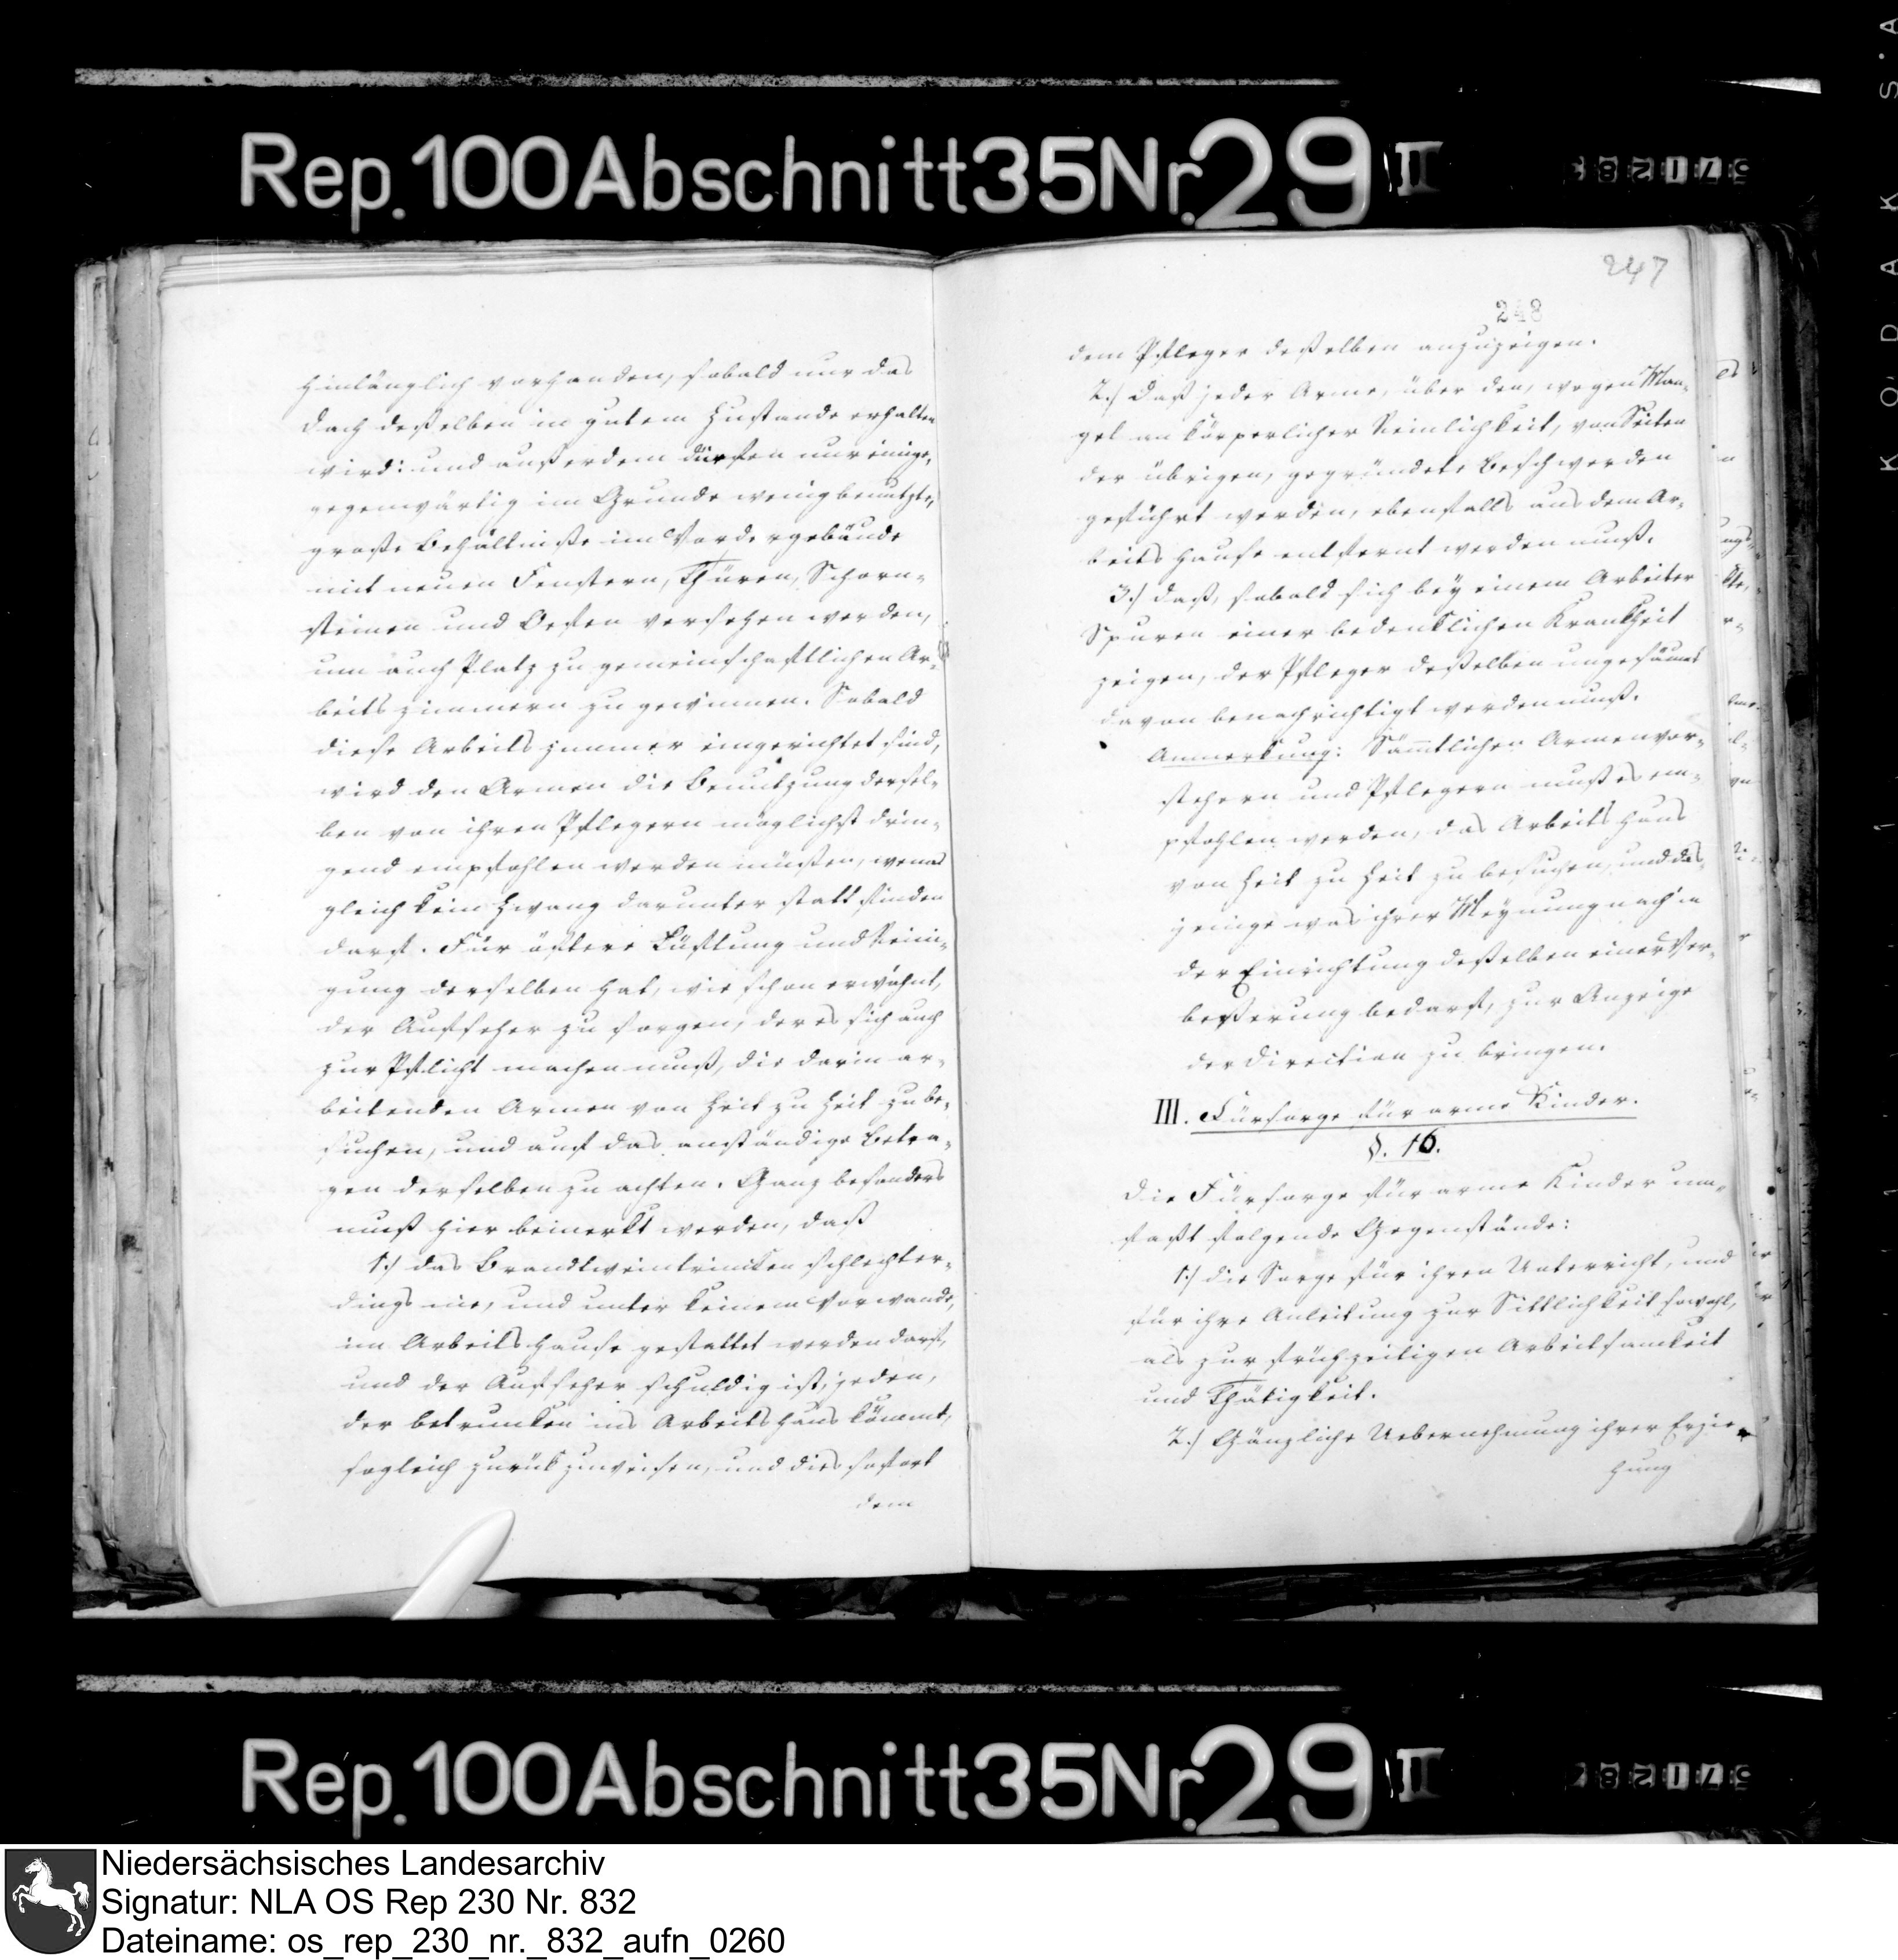 Rep. 100 Abschnitt 35 Nr. 29 II
hinlänglich vorhanden, sobald nur das
Dach deßelben in gutem Zustande erhalten
wird: und außerdem dürfen nur einige,
gegenwärtig im Grunde wenig benutzte,
große Behältniße im Vordergebäude
mit neuen Fenstern, Thüren, Schorn-
steinen und Oefen versehen werden,
um auch Platz zu gemeinschaftlichen Ar-
beitszimmern zu gewinnen. Sobald
diese Arbeitszimmer eingerichtet sind,
wird den Armen die Benutzung dersel-
ben von ihren Pflegern möglichst drin-
gend empfohlen werden müßen, wenn
gleich kein Zwang darunter statt finden
darf. Für öftere Lüftung und Reini-
gung derselben hat, wie schon erwähnt,
der Aufseher zu sorgen, der es sich auch
zur Pflicht machen muß, die darin ar-
beitenden Armen von Zeit zu Zeit zu be-
suchen, und auf das anständige Betra-
gen derselben zu achten. Ganz besonders
muß hier bemerkt werden, daß
1.) das Brandtweintrinken schlechter-
dings nie, und unter keinem Vorwande,
im Arbeitshause gestattet werden darf,
und der Aufseher schuldig ist, jeden,
der betrunken ins Arbeitshaus kömmt,
sogleich zurükzuweisen, und dies sofort
dem
247
248
dem Pfleger deßelben anzuzeigen.
2.) Daß jeder Arme, über den, wegen Man-
gel an körperlicher Reinlichkeit, von Seiten
der übrigen, gegründete Beschwerden
geführt werden, ebenfalls aus dem Ar-
beitshause entfernt werden muß.
3.) daß, sobald sich bey einem Arbeiter
Spuren einer bedenklichen Krankheit
zeigen, der Pfleger deßelben ungesäumt
davon benachrichtigt werden muß.
Anmerkung: Sämtlichen Armenvor-
stehern und Pflegern muß es em-
pfohlen werden, das Arbeitshaus
von Zeit zu Zeit zu besuchen, und das-
jenige was ihrer Meynung nach in
der Einrichtung deßelben einer Ver-
beßerung bedarf, zur Anzeige
der Direction zu bringen.
III. Fürsorge für arme Kinder.
§. 16.
Die Fürsorge für arme Kinder um-
faßt folgende Gegenstände:
1.) die Sorge für ihren Unterricht, und
für ihre Anleitung zur Sittlichkeit sowohl,
als zur frühzeitigen Arbeitsamkeit
und Thätigkeit.
2.) Gänzliche Uebernehmung ihrer Erzie-
hung
Rep. 100 Abschnitt 35 Nr. 29 II
Niedersächsisches Landesarchiv
Signatur: NLA OS Rep 230 Nr. 832
Dateiname: os_rep_230_nr._832_aufn_0260